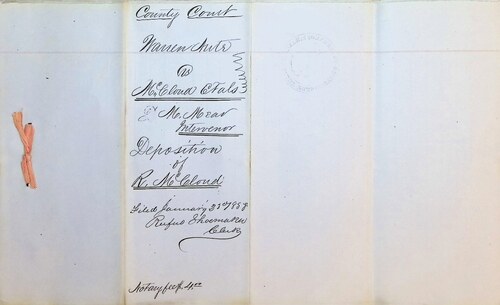 County Court
Warren
vs
McCloud Et als
Ex Mc. Mear
Intervenor
Deposition
of
R. McCloud
Filed January 23rd 1858
Rufus Shoemaker
Clerk
Notary fees 4.00